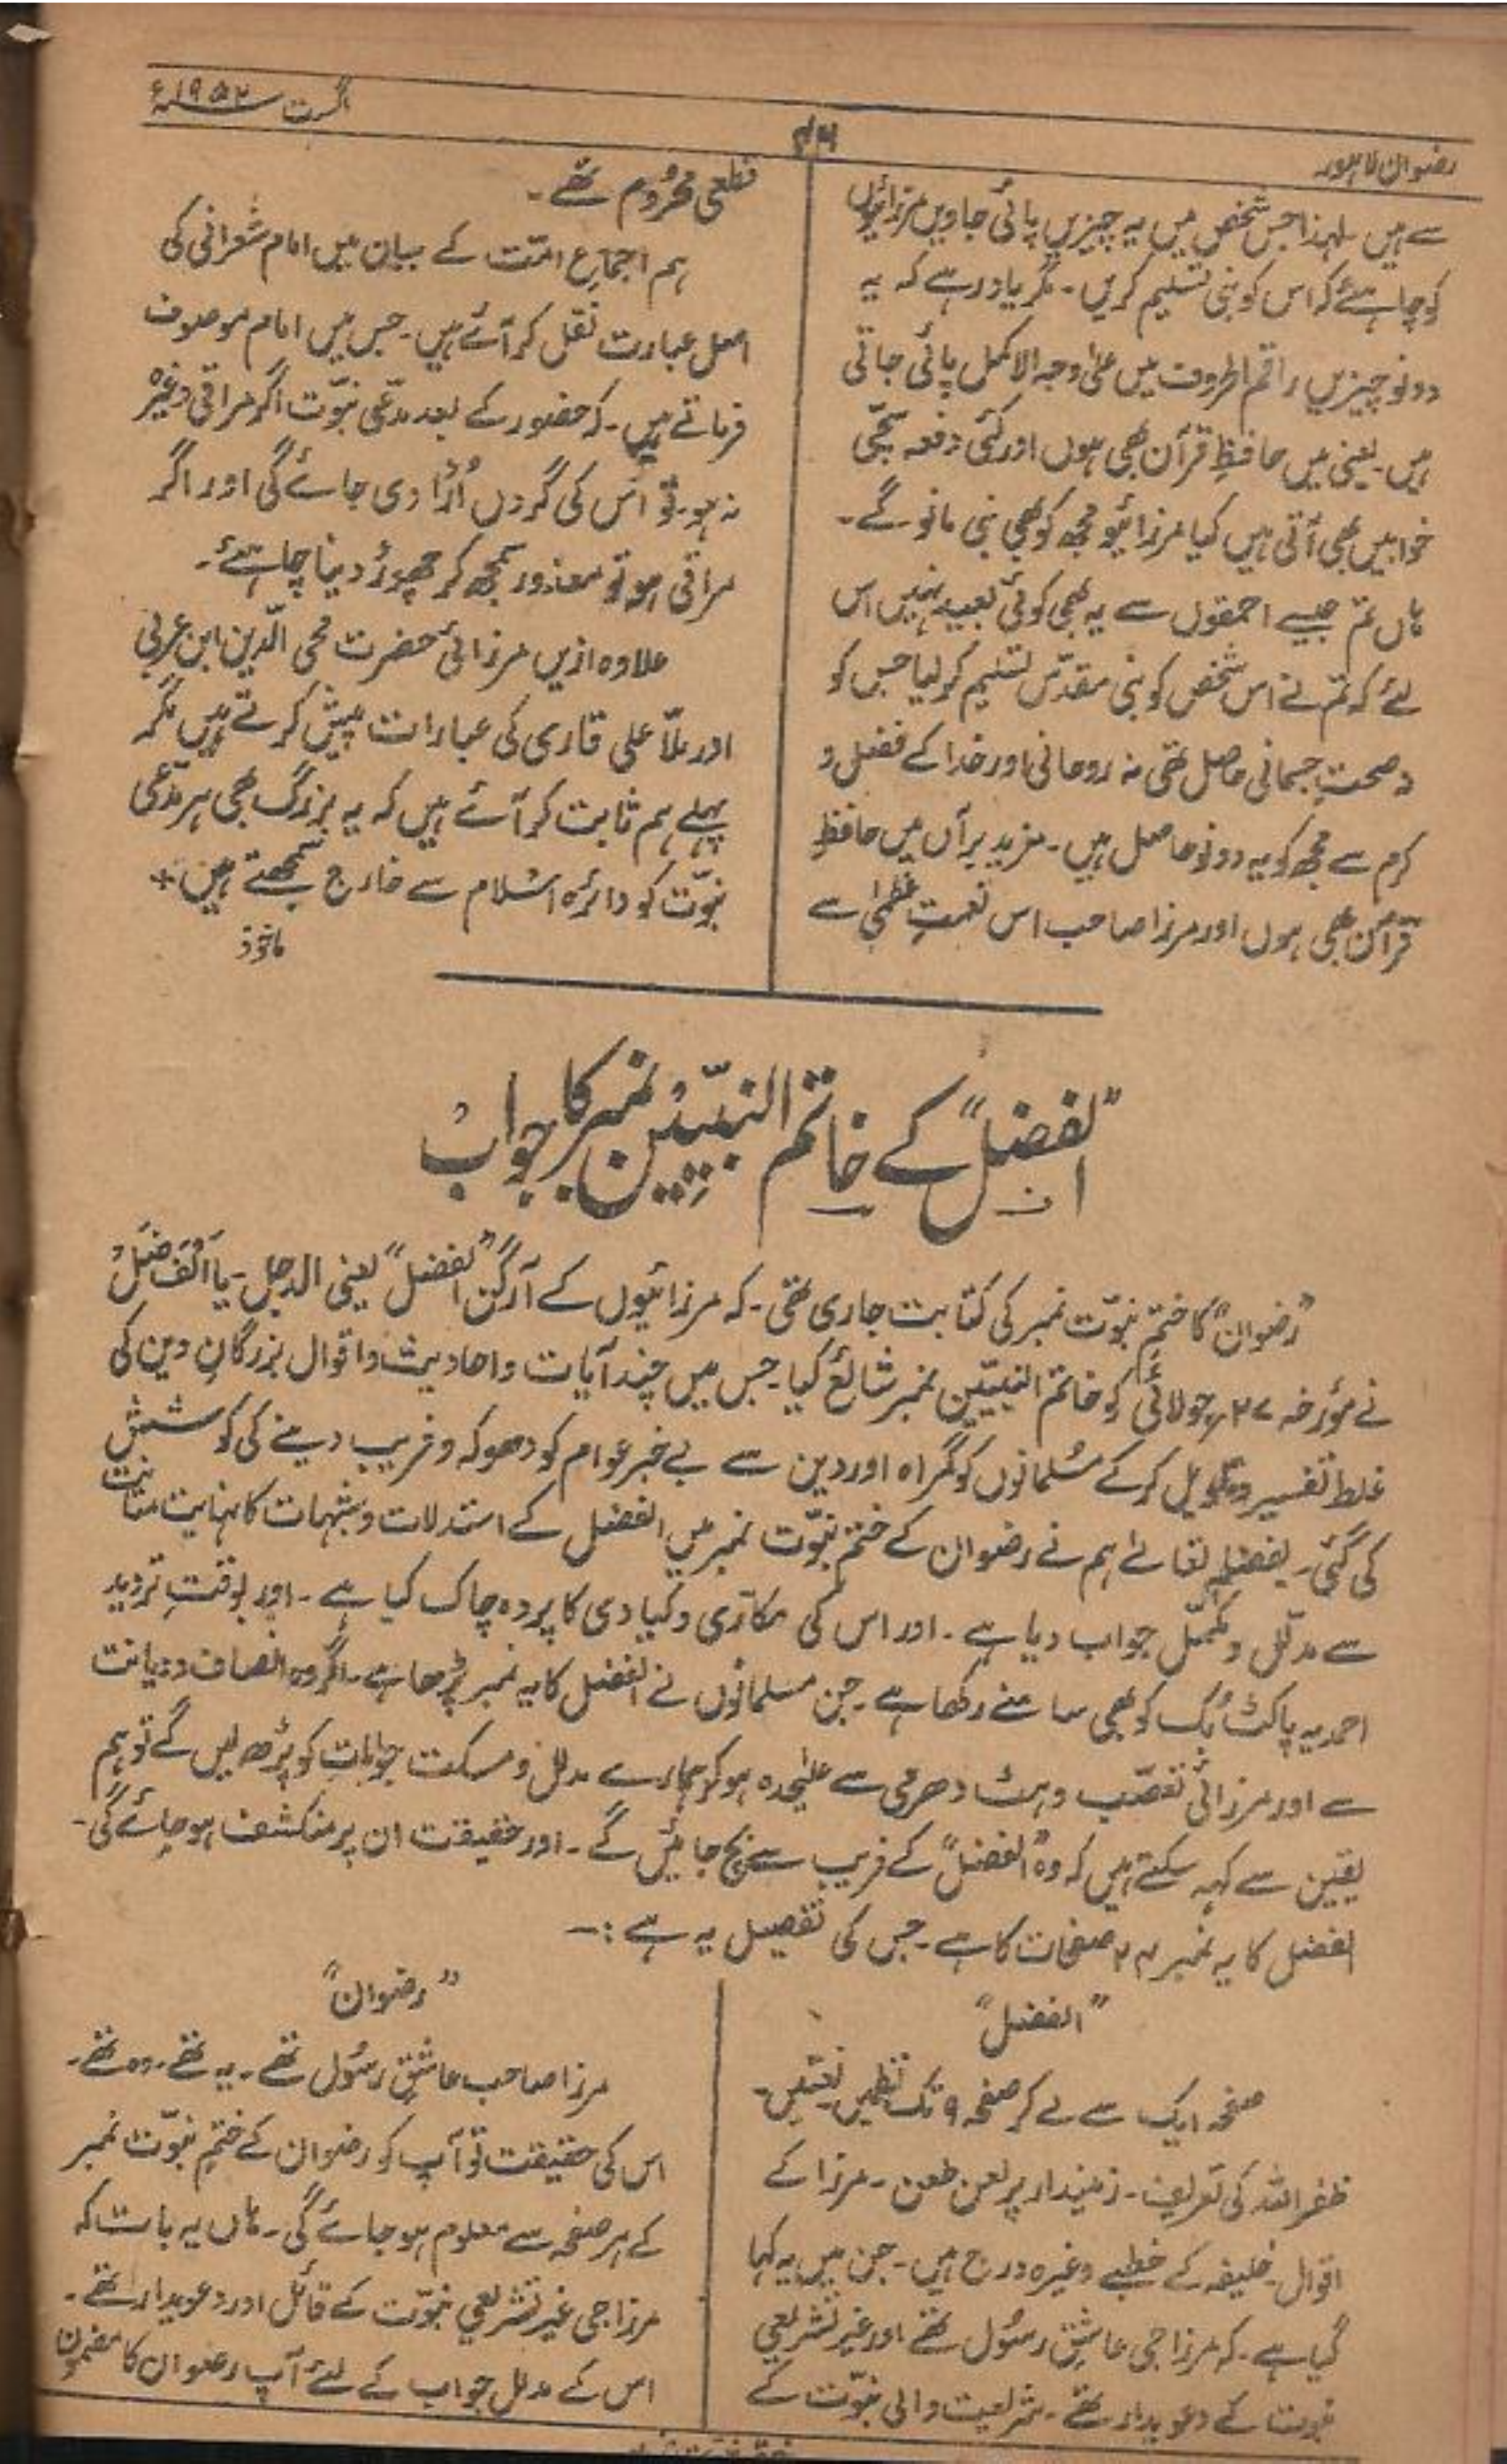 رضوان لاہور
۴۶
اگست ۱۹۵۲ء
سے ہیں۔ لہذا جس شخص میں یہ چیزیں پائی جاویں مرزائیوں
کو چاہئے کہ اس کو نبی تسلیم کریں۔ مگر یاد رہے کہ یہ
دونو چیزیں راقم الحروف میں علیٰ وجہ الاکمل پائی جاتی
ہیں۔ یعنی میں حافظِ قرآن بھی ہوں اور کئی دفعہ سچی
خوابیں بھی آتی ہیں کیا مرزائیو مجھ کو بھی نبی مانو گے۔
ہاں تم جیسے احمقوں سے یہ بھی کوئی بعید نہیں اس
لئے کہ تم نے اس شخص کو نبی مقدّس تسلیم کر لیا جس کو
نہ صحتِ جسمانی حاصل تھی نہ روحانی اور خدا کے فضل و
کرم سے مجھ کو یہ دونو حاصل ہیں۔ مزید برآں میں حافظِ
قرآن بھی ہوں اور مرزا صاحب اس نعمتِ عظمٰی سے
قطعی محرُوم تھے۔
ہم اجماعِ امّت کے بیان میں امام شعرانی کی
اصل عبارت نقل کر آئے ہیں۔ جس میں امام موصوف
فرماتے ہیں۔ کہ حضور کے بعد مدّعی نبوّت اگر مراقی وغیرہ
نہ ہو۔ تو اُس کی گردن اُڑا دی جائے گی اور اگر
مراقی ہو تو معذور سمجھ کر چھوڑ دینا چاہئے۔
علاوہ ازیں مرزائی حضرت محی الدّین ابن عربی
اور ملّا علی قاری کی عبارات پیش کرتے ہیں مگر
پہلے ہم ثابت کر آئے ہیں کہ یہ بزرگ بھی ہر مدّعی
نبوّت کو دائرہ اسلام سے خارج سمجھتے ہیں٭
ماخوذ
"الفضل" کے خاتم النبیّین نمبر کا جواب
"رضوان" کا ختمِ نبوّت نمبر کی کتابت جاری تھی۔ کہ مرزائیوں کے آرگن "الفضل" یعنی الدجل۔ یا اَلْفَضَلْ
نے مؤرخہ ۲۷ جولائی کو خاتم النبیّین نمبر شائع کیا۔ جس میں چند آیات و احادیث و اقوال بزرگانِ دین کی
غلط تفسیر و تاویل کر کے مُسلمانوں کو گمراہ اور دین سے بے خبر عوام کو دھوکہ و فریب دینے کی کوشش
کی گئی۔ بفضلہٖ تعالےٰ ہم نے رضوان کے ختم نبوّت نمبر میں الفضل کے استدلات و شبہات کا نہایت متانت
سے مدلّل و مکمّل جواب دیا ہے۔ اور اس کی مکاری و کیادی کا پردہ چاک کیا ہے۔ اور بوقتِ تردید
احمدیہ پاکٹ بُک کو بھی سامنے رکھا ہے۔ جن مسلمانوں نے الفضل کا یہ نمبر پڑھا ہے۔ اگر وہ انصاف و دیانت
سے اور مرزائی تعصّب و ہٹ دھرمی سے علیٰحدہ ہو کر ہمارے مدلل و مسکت جوابات کو پڑھ لیں گے تو ہم
یقین سے کہہ سکتے ہیں کہ وہ "الفضل" کے فریب سے بچ جائیں گے۔ اور حقیقت ان پر منکشف ہو جائے گی۔
الفضل کا یہ نمبر ۲۲ صفحات کا ہے۔ جس کی تفصیل یہ ہے :—
"الفضل"
صفحہ ایک سے لے کر صفحہ ۹ تک نظمیں نعتیں۔
ظفراللہ کی تعریف۔ زمیندار پر لعن طعن۔ مرزا کے
اقوال۔ خلیفہ کے خطبے وغیرہ درج ہیں۔ جن میں یہ کہا
گیا ہے۔ کہ مرزا جی عاشقِ رسُول تھے اور غیر تشریعی
نبوت کے دعویدار تھے۔ شریعت والی نبوّت کے
"رضوان"
مرزا صاحب عاشقِ رسُول تھے۔ یہ تھے۔ وہ تھے۔
اس کی حقیقت تو آپ کو رضوان کے ختمِ نبوّت نمبر
کے ہر صفحہ سے معلوم ہو جائے گی۔ ہاں یہ بات کہ
مرزا جی غیر تشریعی نبوّت کے قائل اور دعویدار تھے۔
اس کے مدلل جواب کے لئے آپ رضوان کا مضمون